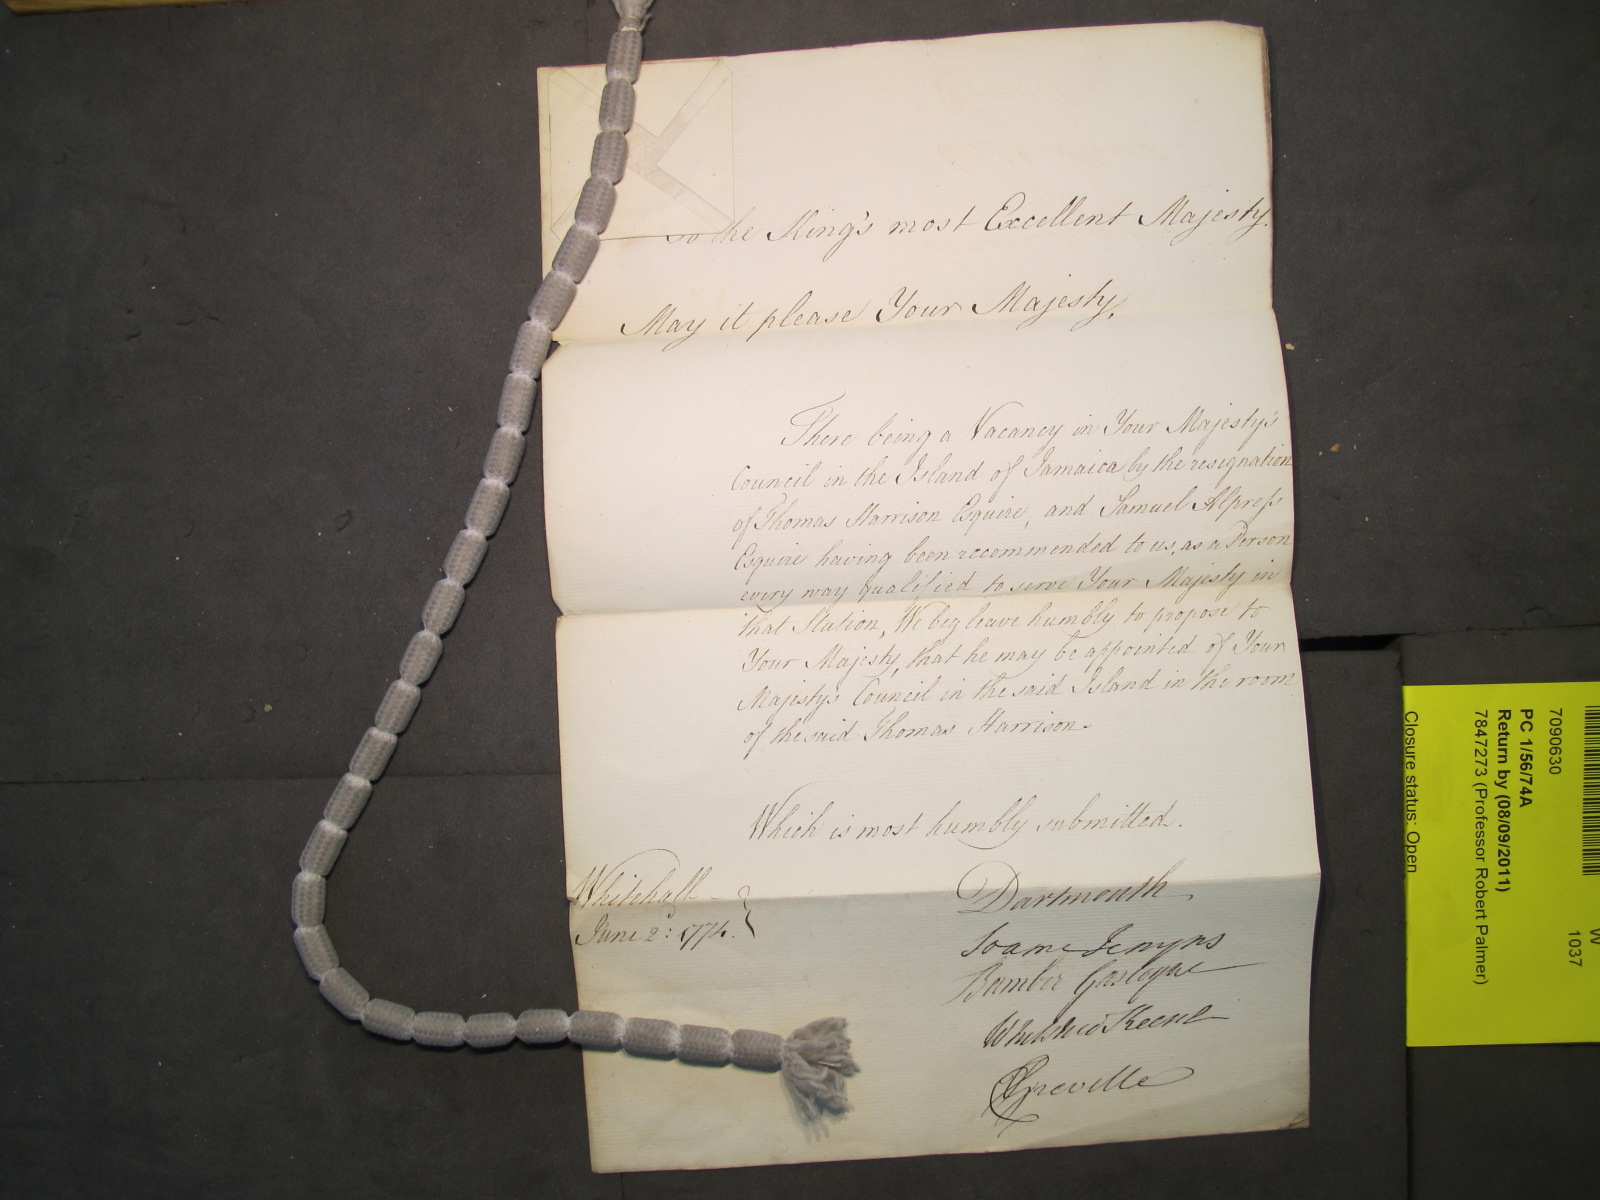 To the King's most Excellent Majesty.
May it please Your Majesty,
There being a Vacancy in Your Majesty's
Council in the Island of Jamaica by the resignation
of Thomas Harrison Esquire, and Samuel Alpress
Esquire having been recommended to us, as a Person
every way qualified to serve Your Majesty in
that Station, We beg leave humbly to propose to
Your Majesty, that he may be appointed of Your
Majesty's Council in the said Island in the room
of the said Thomas Harrison.
Which is most humbly submitted.
Whitehall
June 2d: 1774.
Dartmouth
Soame Jenyns
Bamber Gascoyne
Whitshed Keene
Greville
W
1037
7090630
PC 1/56/74A
Return by (08/09/2011)
7847273 (Professor Robert Palmer)
Closure status: Open